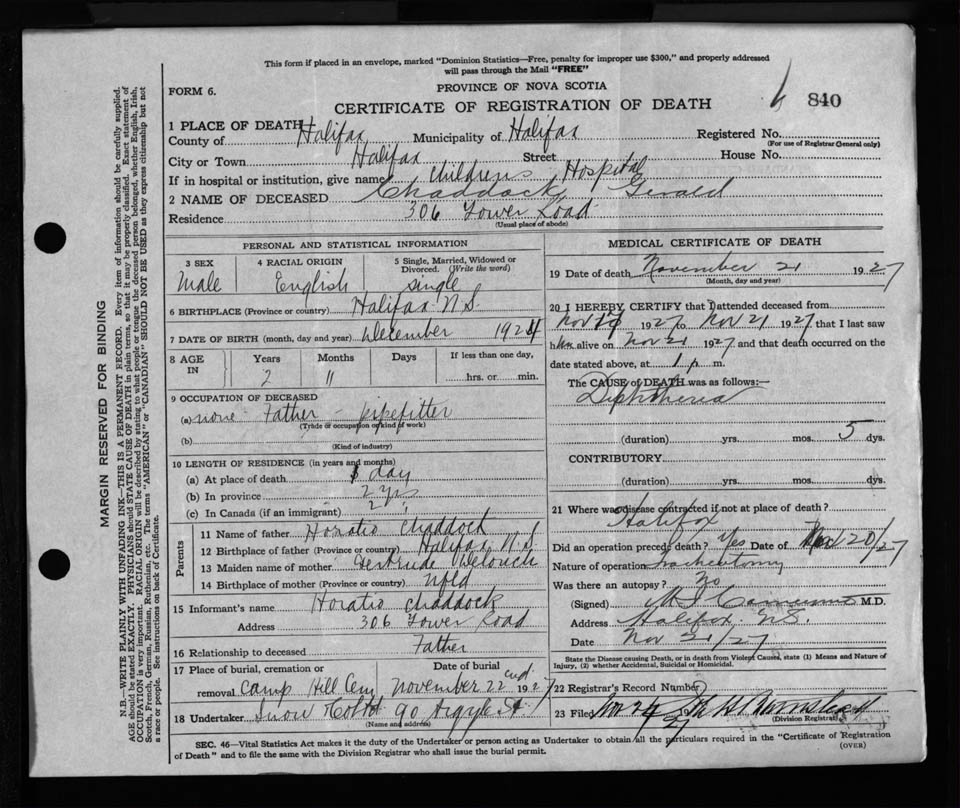 This form if placed in an envelope, marked "Dominion Statistics—Free, penalty for improper use $300," and properly addressed
will pass through the Mail "FREE"
FORM 6.
PROVINCE OF NOVA SCOTIA
CERTIFICATE OF REGISTRATION OF DEATH
840
1 PLACE OF DEATH
County of Halifax Municipality of Halifax Registered No.
(For use of Registrar General only)
City or Town Halifax Street House No.
If in hospital or institution, give name Childrens Hospital
2 NAME OF DECEASED Chaddock Gerald
Residence 306 Tower Road
(Usual place of abode)
PERSONAL AND STATISTICAL INFORMATION
3 SEX 4 RACIAL ORIGIN 5 Single, Married, Widowed or
Divorced. (Write the word)
Male English single
6 BIRTHPLACE (Province or country) Halifax N.S.
7 DATE OF BIRTH (month, day and year) December 1924
8 AGE IN Years Months Days If less than one day,
2 11 hrs. or min.
9 OCCUPATION OF DECEASED
(a) none - Father - pipefitter
(Trade or occupation or kind of work)
(b)
(Kind of industry)
10 LENGTH OF RESIDENCE (in years and months)
(a) At place of death 1 day
(b) In province 2 yrs
(c) In Canada (if an immigrant) 2 yrs
Parents
11 Name of father Horatio Chaddock
12 Birthplace of father (Province or country) Halifax N.S.
13 Maiden name of mother Gertrude
14 Birthplace of mother (Province or country) Nfld
15 Informant's name Horatio Chaddock
Address 306 Tower Road
16 Relationship to deceased Father
17 Place of burial, cremation or Date of burial
removal Camp Hill Cem November 22nd 1927
18 Undertaker Snow Co Ltd 90 Argyle St
(Name and address)
MEDICAL CERTIFICATE OF DEATH
19 Date of death November 21 1927
(Month, day and year)
20 I HEREBY CERTIFY that I attended deceased from
Nov 1927 to Nov 21 1927 that I last saw
him alive on Nov 21 1927 and that death occurred on the
date stated above, at 1 p m.
The CAUSE of DEATH was as follows:—
Diphtheria
(duration) yrs. mos. 5 dys.
CONTRIBUTORY
(duration) yrs. mos. dys.
21 Where was disease contracted if not at place of death?
Halifax
Did an operation precede death? Yes Date of Nov 20/27
Nature of operation Tracheotomy
Was there an autopsy? No
(Signed) M.D.
Address Halifax N.S.
Date Nov 21/27
State the Disease causing Death, or in death from Violent Causes, state (1) Means and Nature of
Injury, (2) whether Accidental, Suicidal or Homicidal.
22 Registrar's Record Number
23 Filed
(Division Registrar)
SEC. 46—Vital Statistics Act makes it the duty of the Undertaker or person acting as Undertaker to obtain all the particulars required in the "Certificate of Registration
of Death" and to file the same with the Division Registrar who shall issue the burial permit.
(OVER)
MARGIN RESERVED FOR BINDING
N.B.—WRITE PLAINLY WITH UNFADING INK—THIS IS A PERMANENT RECORD. Every item of information should be carefully supplied.
AGE should be stated EXACTLY. PHYSICIANS should STATE CAUSE OF DEATH in plain terms, so that it may be properly classified. Exact statement of
OCCUPATION is very important. RACIAL ORIGIN will be described by stating to what people or tongue the deceased person belonged, whether English, Irish,
Scotch, French, German, Russian, Ruthenian, etc. The terms "AMERICAN" or "CANADIAN" SHOULD NOT BE USED as they express citizenship but not
a race or people. See instructions on back of Certificate.